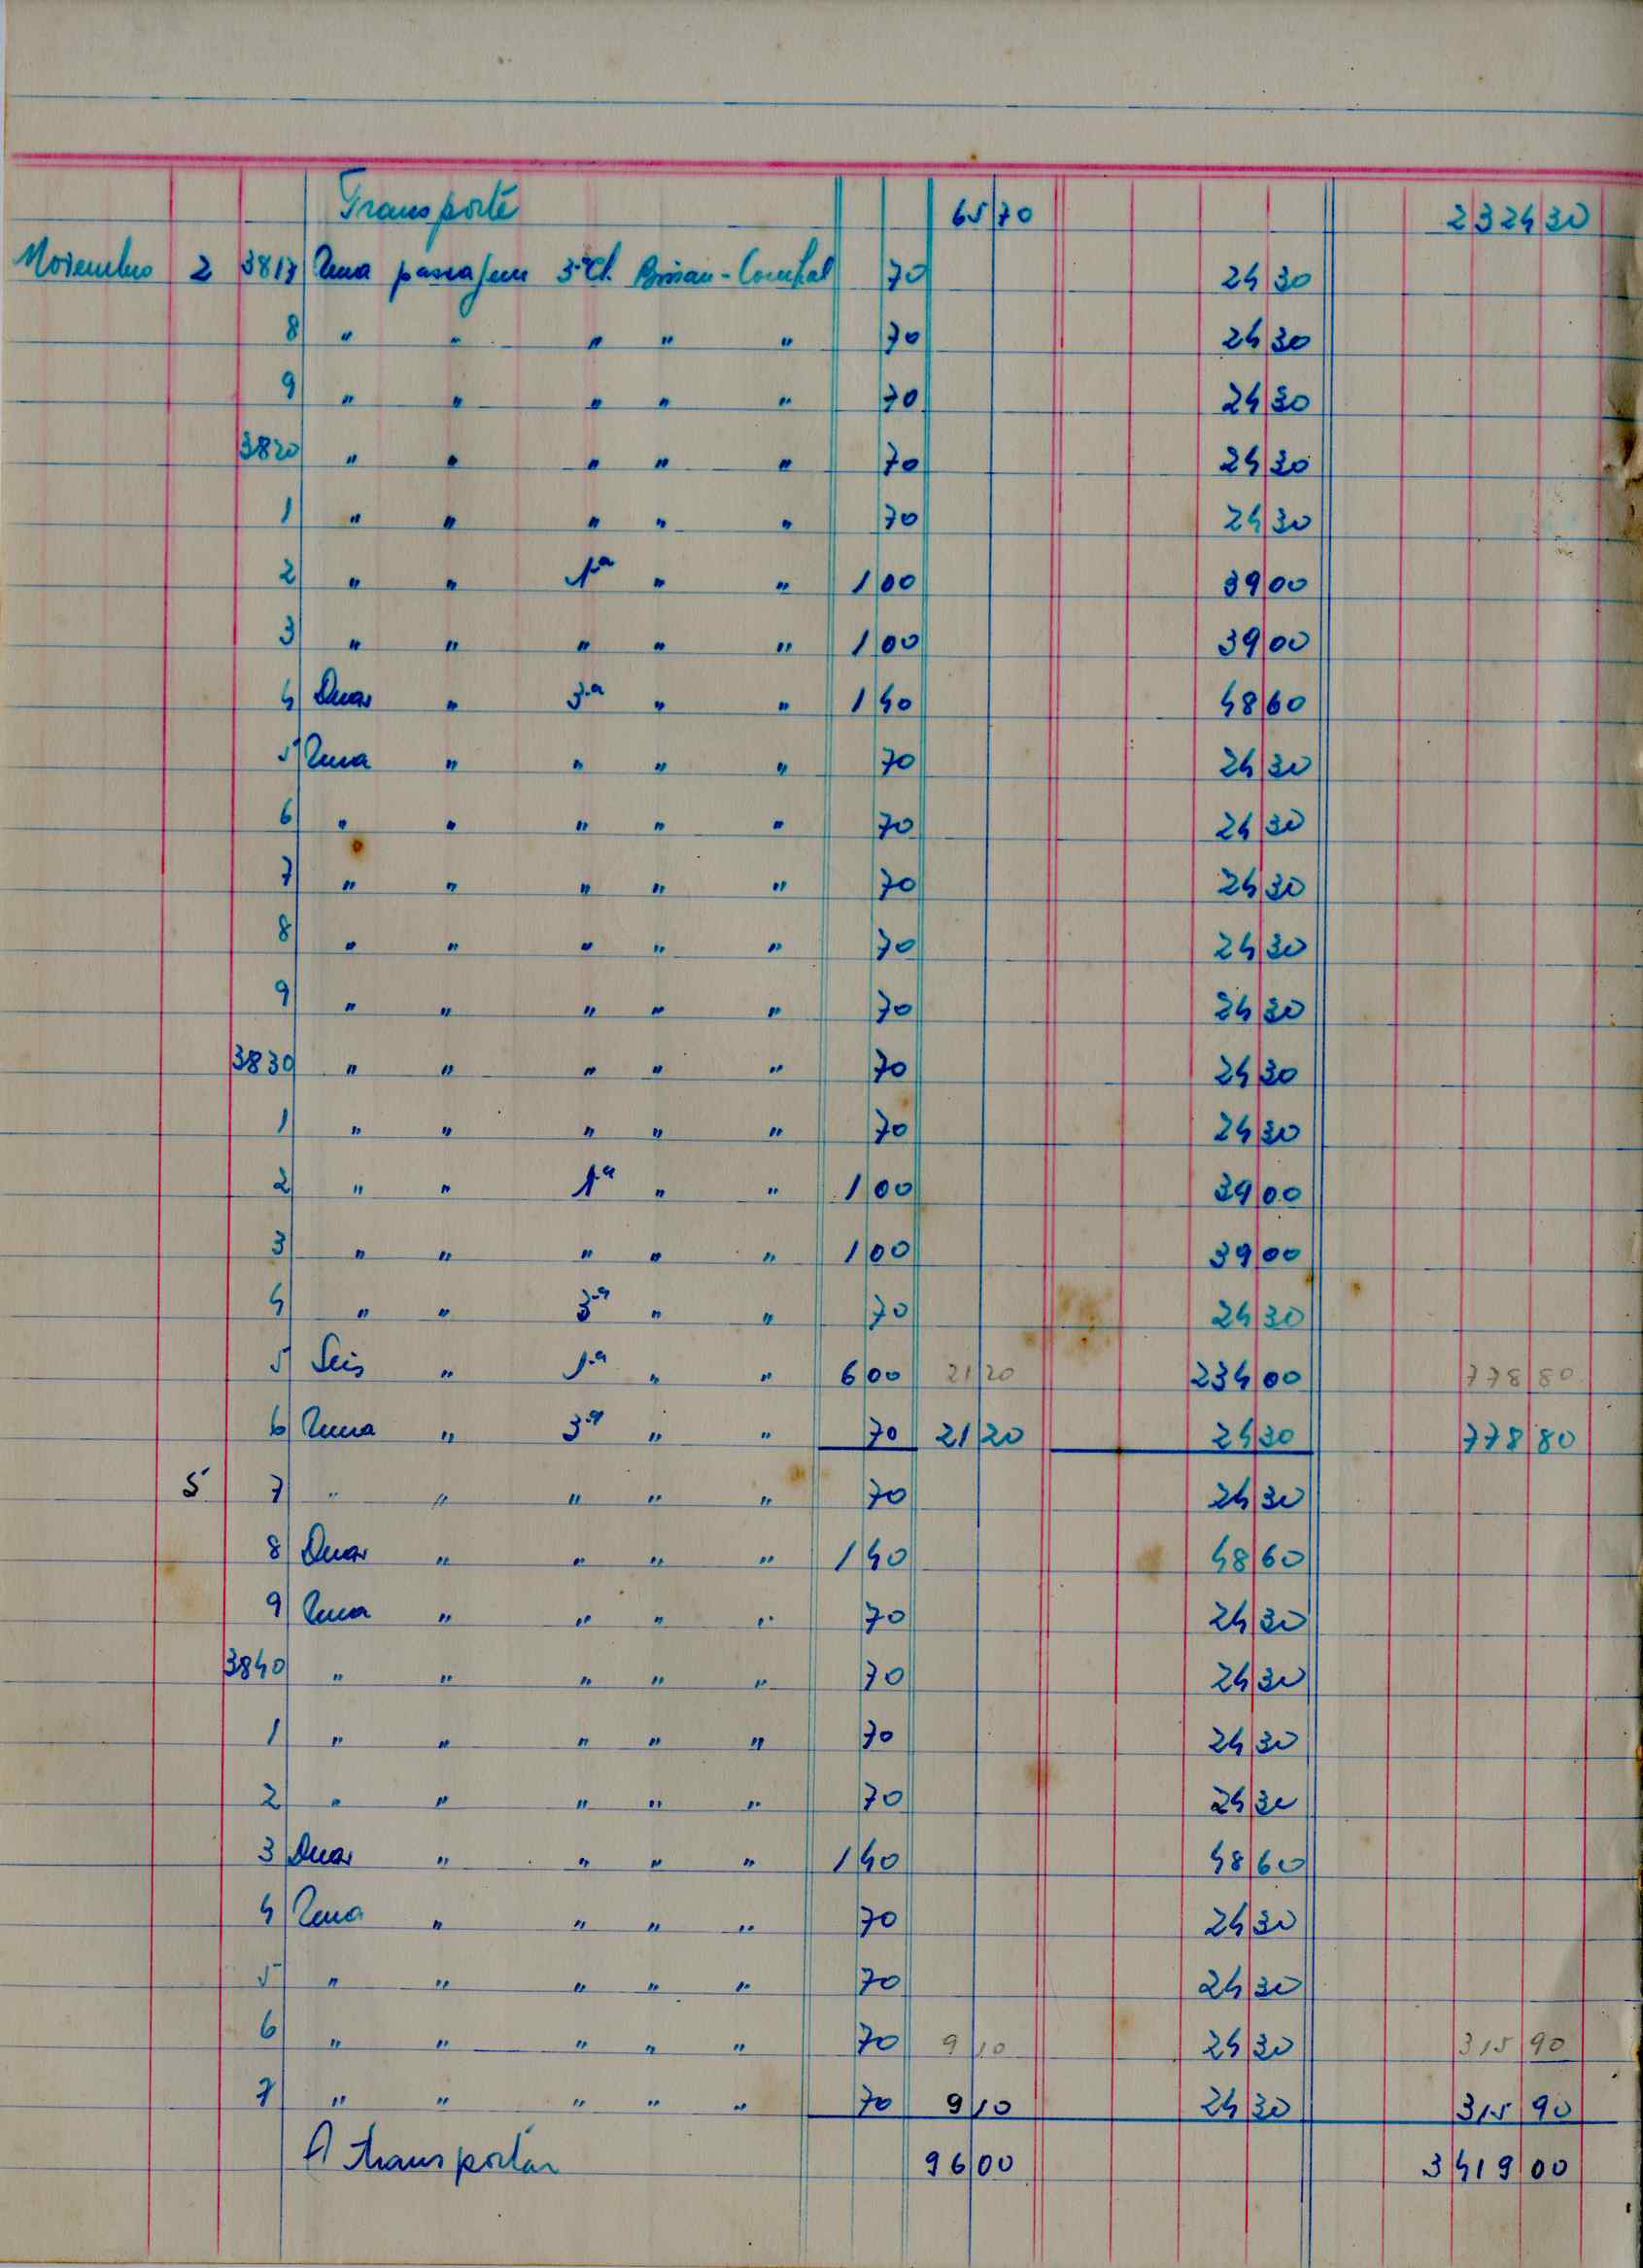 Transporte 65 70 2324 30
Novembro 2 3817 Uma passajem 3ª Cl. Bissau - Cumbal 70 24 30
8 " " " " " 70 24 30
9 " " " " " 70 24 30
3820 " " " " " 70 24 30
1 " " " " " 70 24 30
2 " " 1ª " " 1 00 39 00
3 " " " " " 1 00 39 00
4 Duas " 3ª " " 1 40 48 60
5 Uma " " " " 70 24 30
6 " " " " " 70 24 30
7 " " " " " 70 24 30
8 " " " " " 70 24 30
9 " " " " " 70 24 30
3830 " " " " " 70 24 30
1 " " " " " 70 24 30
2 " " 1ª " " 1 00 39 00
3 " " " " " 1 00 39 00
4 " " 3ª " " 70 24 30
5 Seis " 1ª " " 6 00 21 20 234 00 778 80
6 Uma " 3ª " " 70 21 20 24 30 778 80
5 7 " " " " " 70 24 30
8 Duas " " " " 1 40 48 60
9 Uma " " " " 70 24 30
3840 " " " " " 70 24 30
1 " " " " " 70 24 30
2 " " " " " 70 24 30
3 Duas " " " " 1 40 48 60
4 Uma " " " " 70 24 30
5 " " " " " 70 24 30
6 " " " " " 70 9 10 24 30 315 90
7 " " " " " 70 9 10 24 30 315 90
A transportar 96 00 3419 00